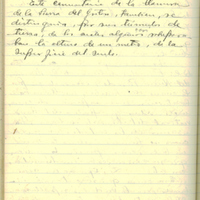 Este cementerio de la Merced
de la Sierra del Gritón, también, se
distinguía, por sus túmulos de
tierra, de los cuales algunos rebasa
ban la altura de un metro, de la
superficie del suelo.